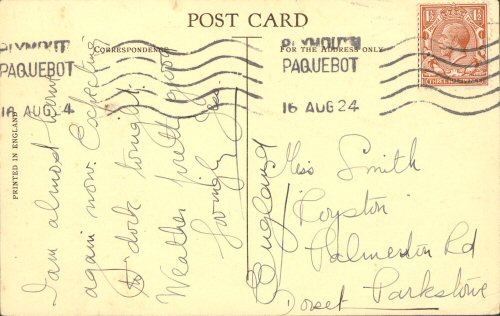 POST CARD
CORRESPONDENCE
FOR THE ADDRESS ONLY
PLYMOUTH
PAQUEBOT
16 AUG 24
PLYMOUTH
PAQUEBOT
16 AUG 24
PRINTED IN ENGLAND
I am almost home
again now. Expecting
to dock tonight.
Weather pretty good
Lovingly
Miss Smith
Royston
Palmerston Rd
Parkstone
Dorset
England